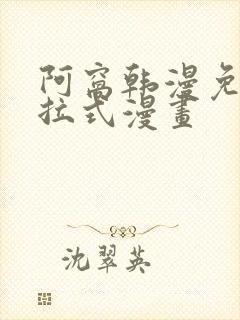 阿窩韩漫免
拉式漫畫
沈翠英